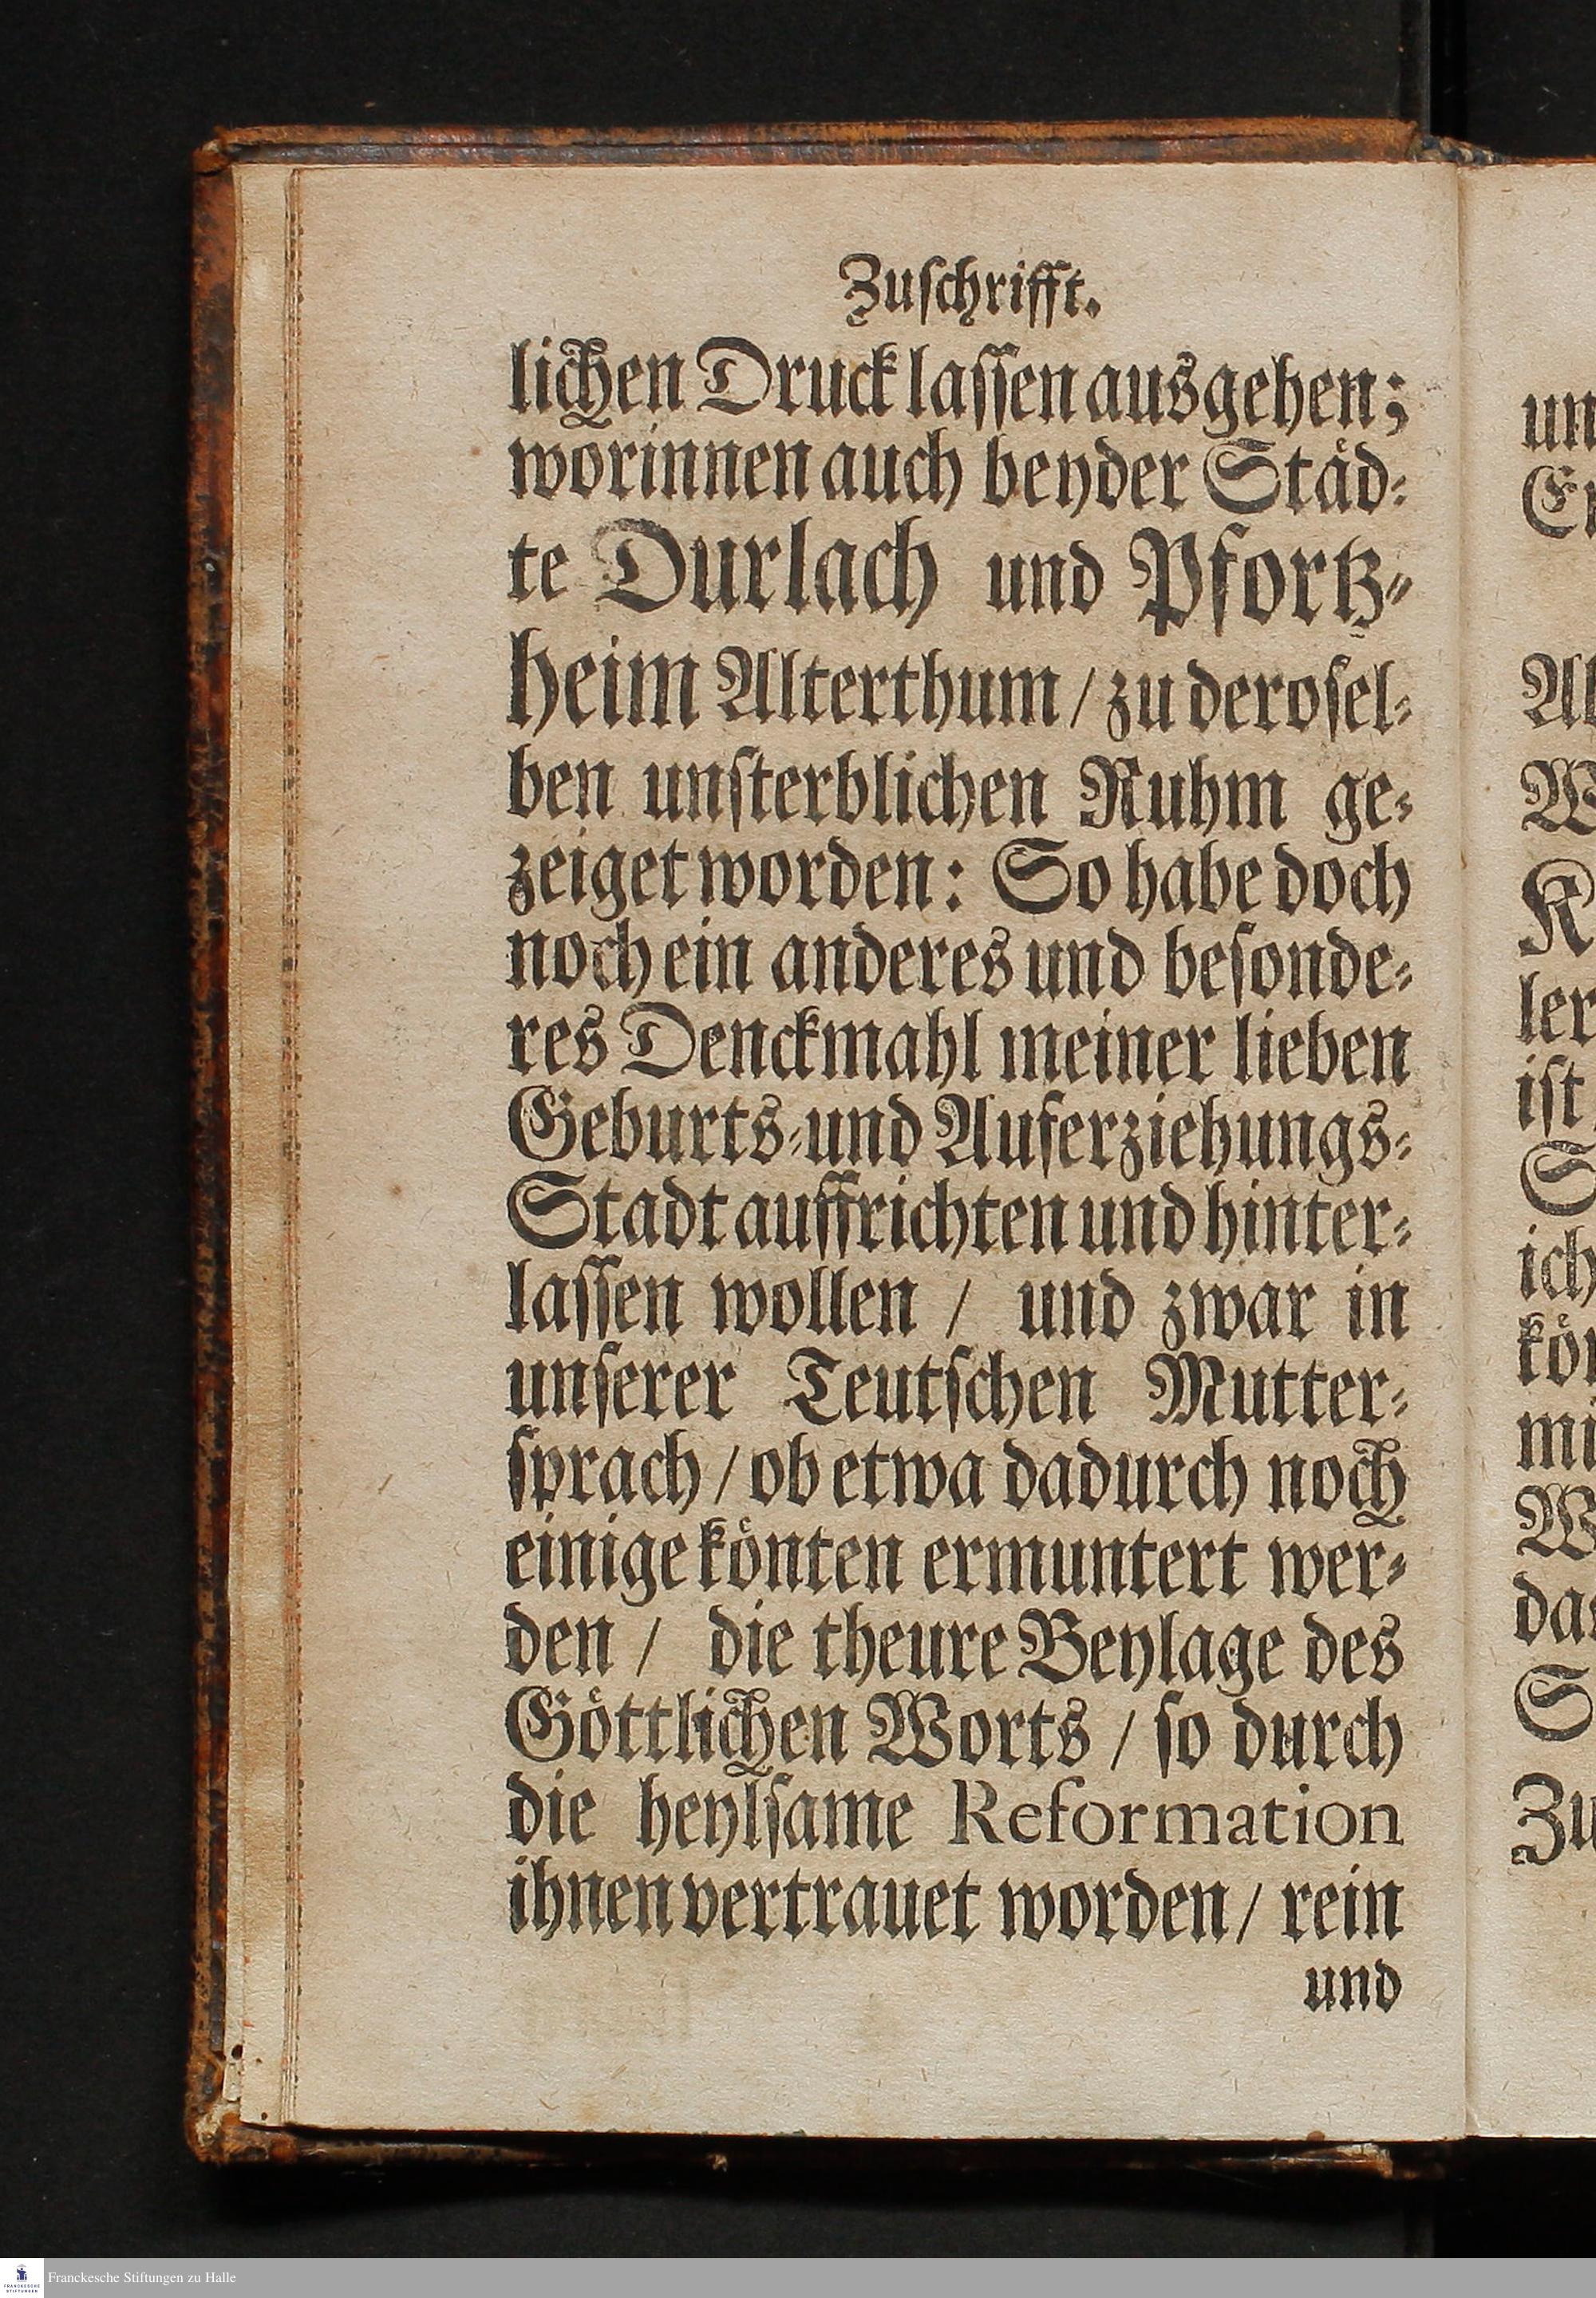 Zuſchrifft.
lichen Druck laſſen ausgehen;
worinnen auch beyder Staͤd-
te Durlach und Pfortz-
heim Alterthum / zu deroſel-
ben unſterblichen Ruhm ge-
zeiget worden: So habe doch
noch ein anderes und beſonde-
res Denckmahl meiner lieben
Geburts-und Auferziehungs-
Stadt auffrichten und hinter-
laſſen wollen / und zwar in
unſerer Teutſchen Mutter-
ſprach / ob etwa dadurch noch
einige koͤnten ermuntert wer-
den / die theure Beylage des
Goͤttlichen Worts / ſo durch
die heylſame Reformation
ihnen vertrauet worden / rein
und
un
Al
W
K
ler
iſt
S
ich
mi
W
S
Zu
Franckesche Stiftungen zu Halle
FRANCKESCHE
STIFTUNGEN